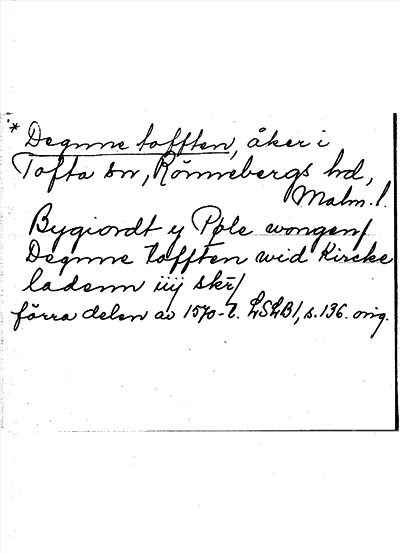 * Degnne tofften, åker i
Tofta sn, Rönnebergs hd,
Malm. l.
Bygiordt y Pøle wongen/
Degnne tofften wid Kircke
ladenn iiij skr/
förra delen av 1570-t. LSLB1, s. 136. orig.